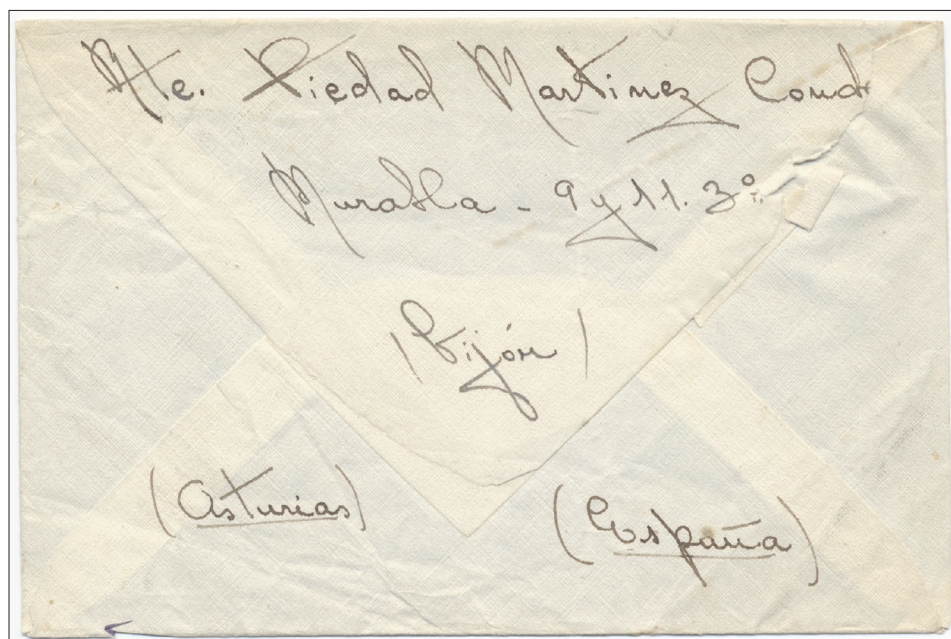 Rte. Piedad Martinez Conde
Muralla - 9 y 11. 3º
(Gijón)
(Asturias) (España)